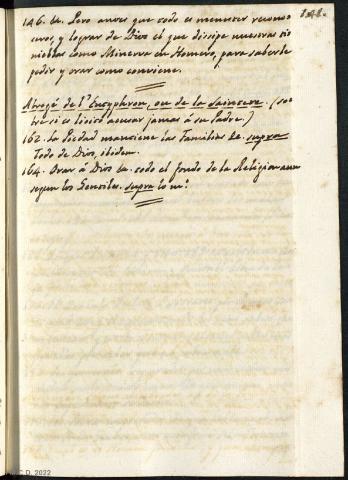 148.
146. &a. Pero antes que todo es menester reconocernos, y lograr de Dios el que dissipe nuestras ti
nieblas como Minerva en Homero, para saberle
pedir y orar como conviene.
Abregé de l'Eutyphron, ou de la Sainteté. (so
bre si es licito acusar jamas á su Padre.)
162. La Piedad mantiene las Familias &c. supra
Todo de Dios, ibidem.
164. Orar á Dios &c. todo el fondo de la Religion aun
segun los Gentiles. supra lo mº
C.D. 2022